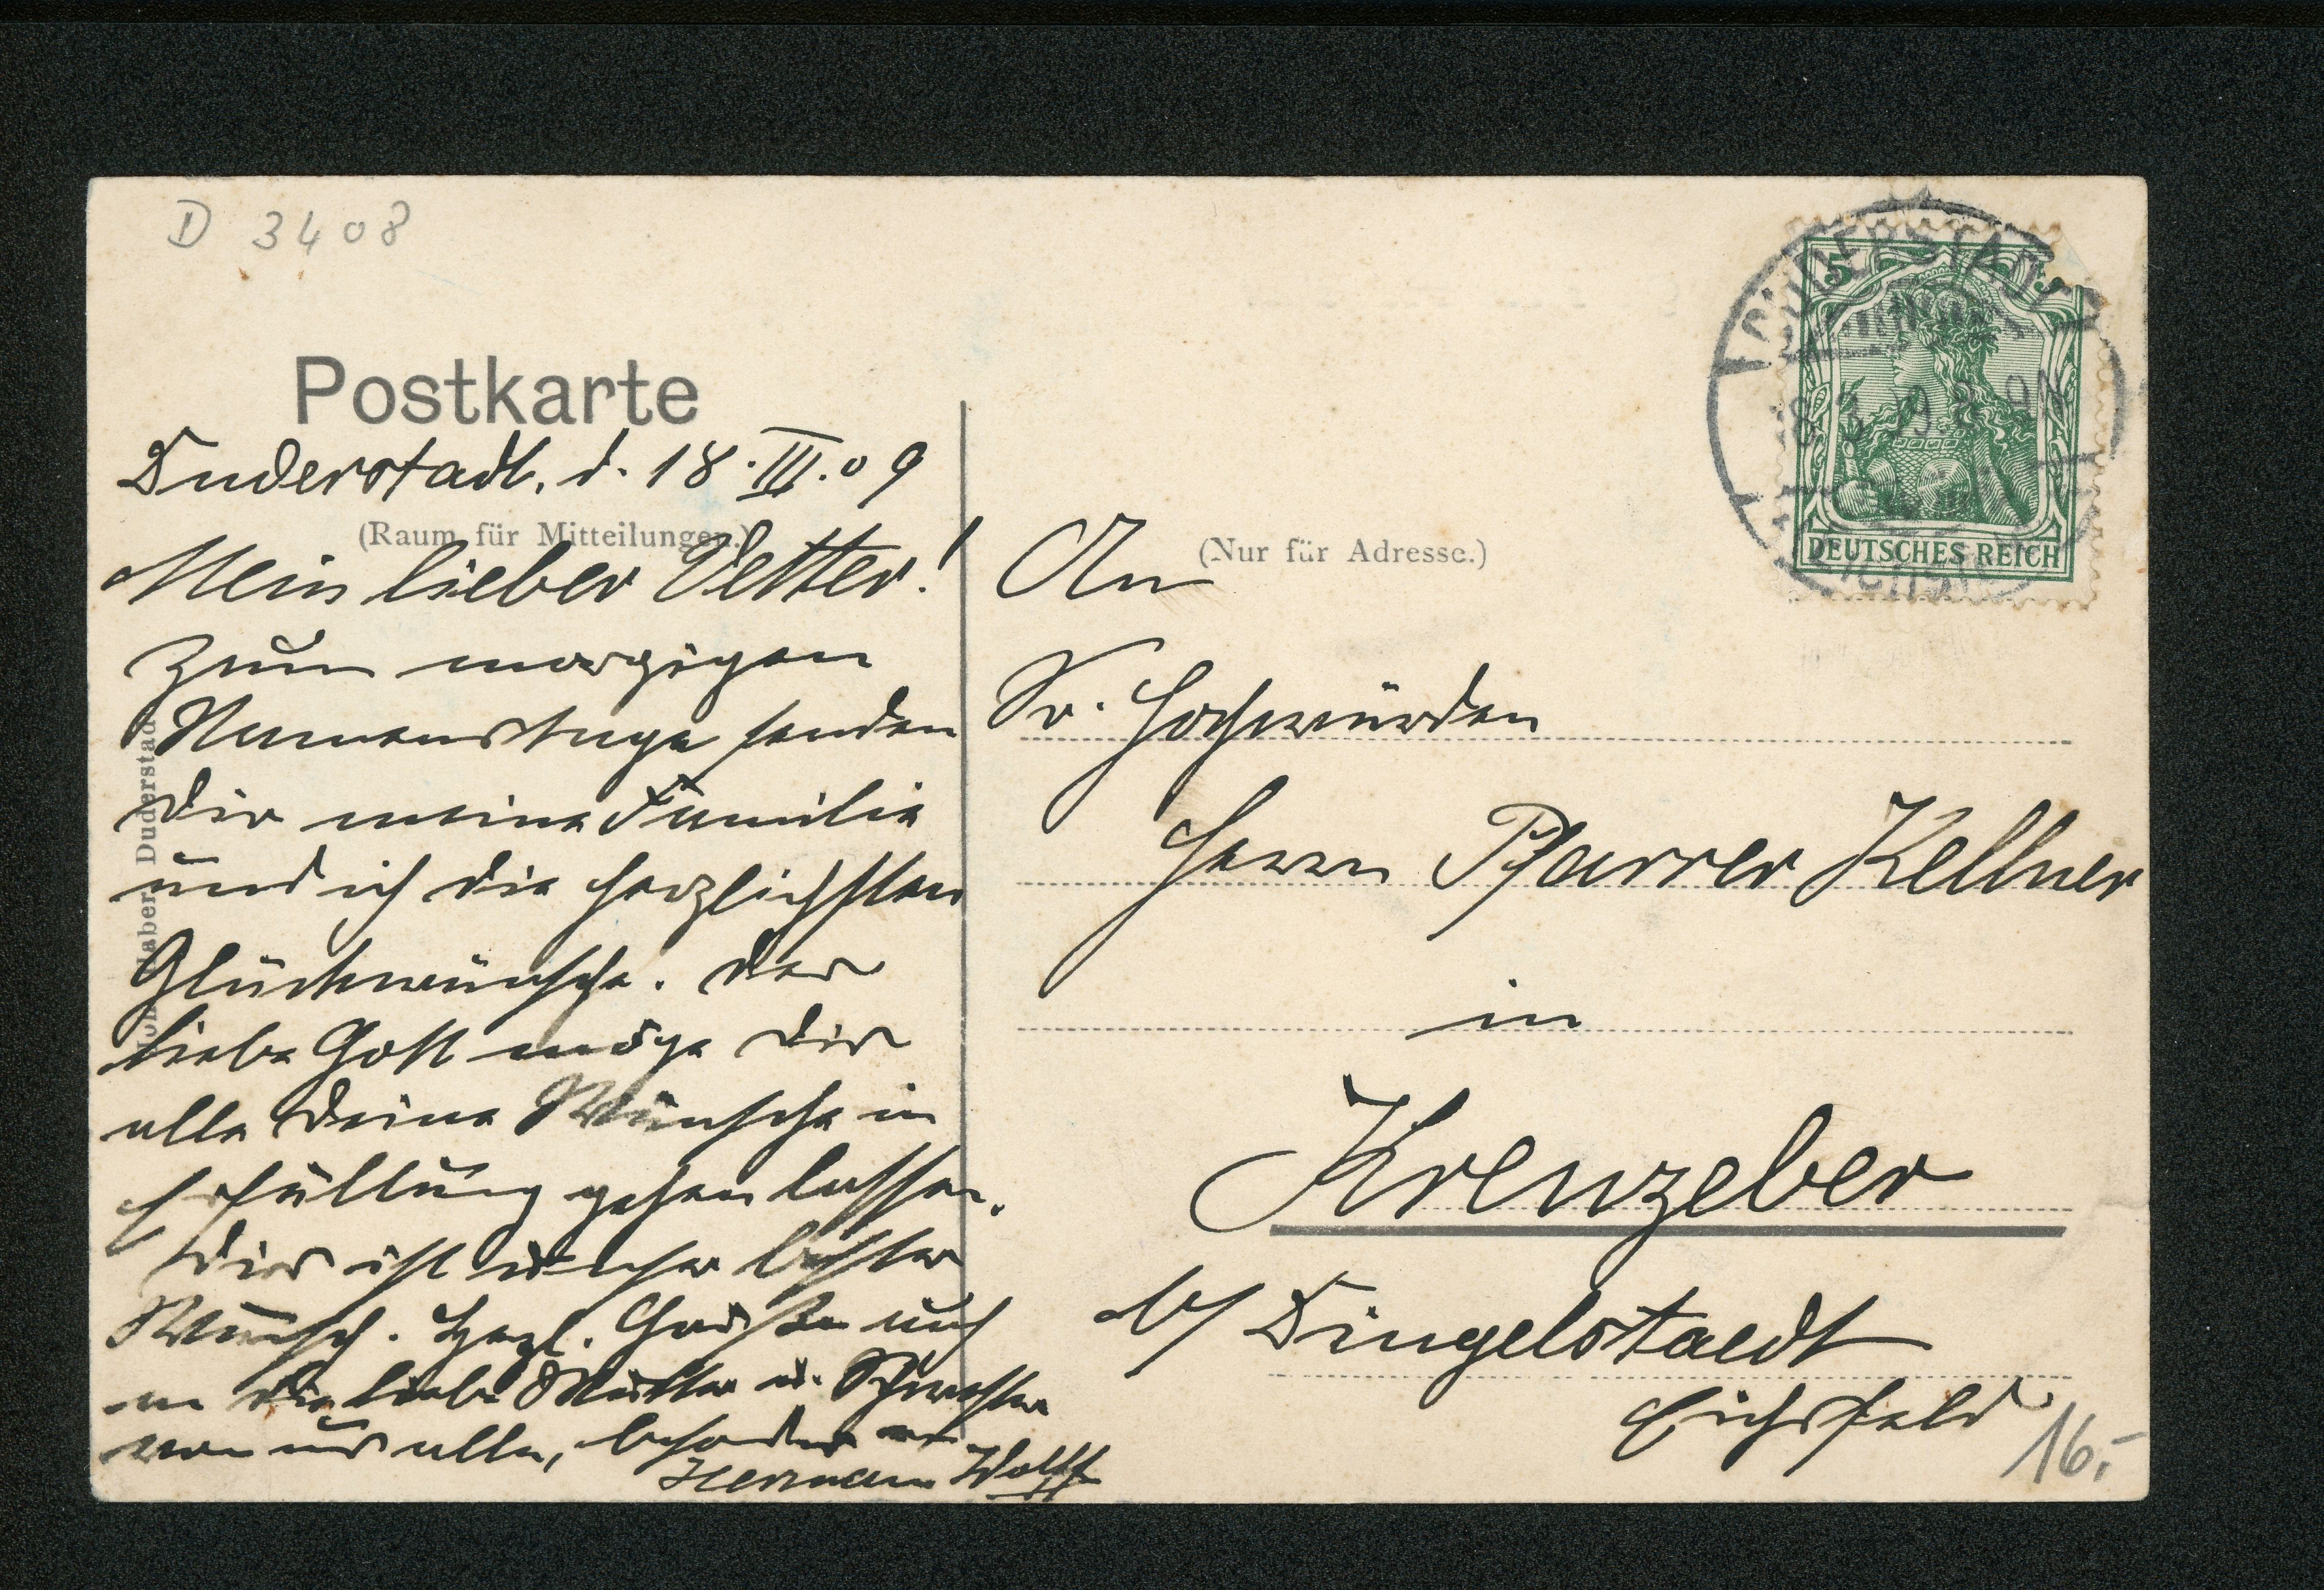 D 3408
Postkarte
Duderstadt, d. 18.III.09
(Raum für Mitteilungen.)
Mein lieber Vetter!
Zum morgigen
Namenstage senden
Dir meine Familie
und ich die herzlichsten
Glückwünsche. Der
liebe Gott möge Dir
alle Deine Wünsche in
Erfüllung gehen lassen.
Dies ist unser bester
Wunsch. Herzl. Grüße auch
an die liebe Mutter u. Schwester
von uns alle, besonders
Hermann Wolff
Duderstadt
DUDERSTADT
18.3.09 8-9N
5 5
DEUTSCHES REICH
(Nur für Adresse.)
An
Sr. Hochwürden
Herrn Pfarrer Kellner
in
Kreuzeber
b/ Dingelstaedt
Eichsfeld
16,-